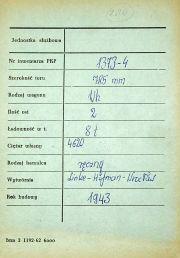 Jednostka służbowa
Nr inwentarza PKP 1373-4
Szerokość toru 785 mm
Rodzaj wagonu
Ilość osi 2
Ładowność w t. 8 t
Ciężar własny 4620
Rodzaj hamulca ręczny
Wytwórnia Linke-Hofman
Rok budowy 1943